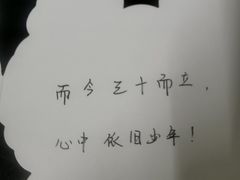 而今三十而立，
心中依旧少年！